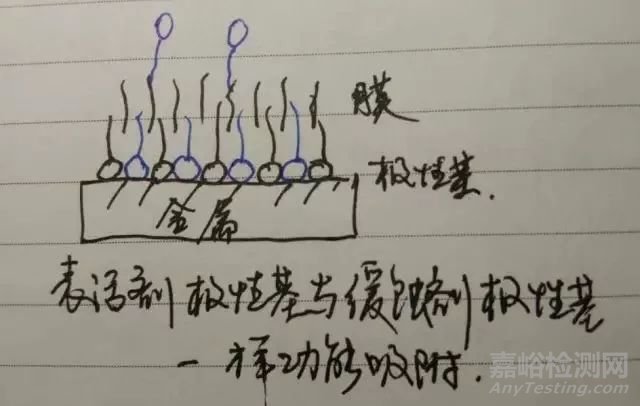 膜
极性基.
金属
表活剂极性基与缓蚀剂极性基
一样功能吸附.
嘉峪检测网
AnyTesting.com